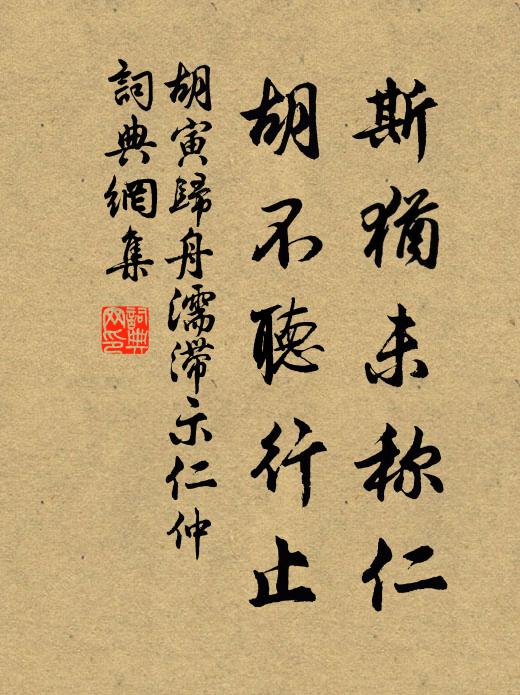 斯猶未称仁
胡不聽行止
胡寅歸舟濡滞示仁仲
詞典網集
詞典网印